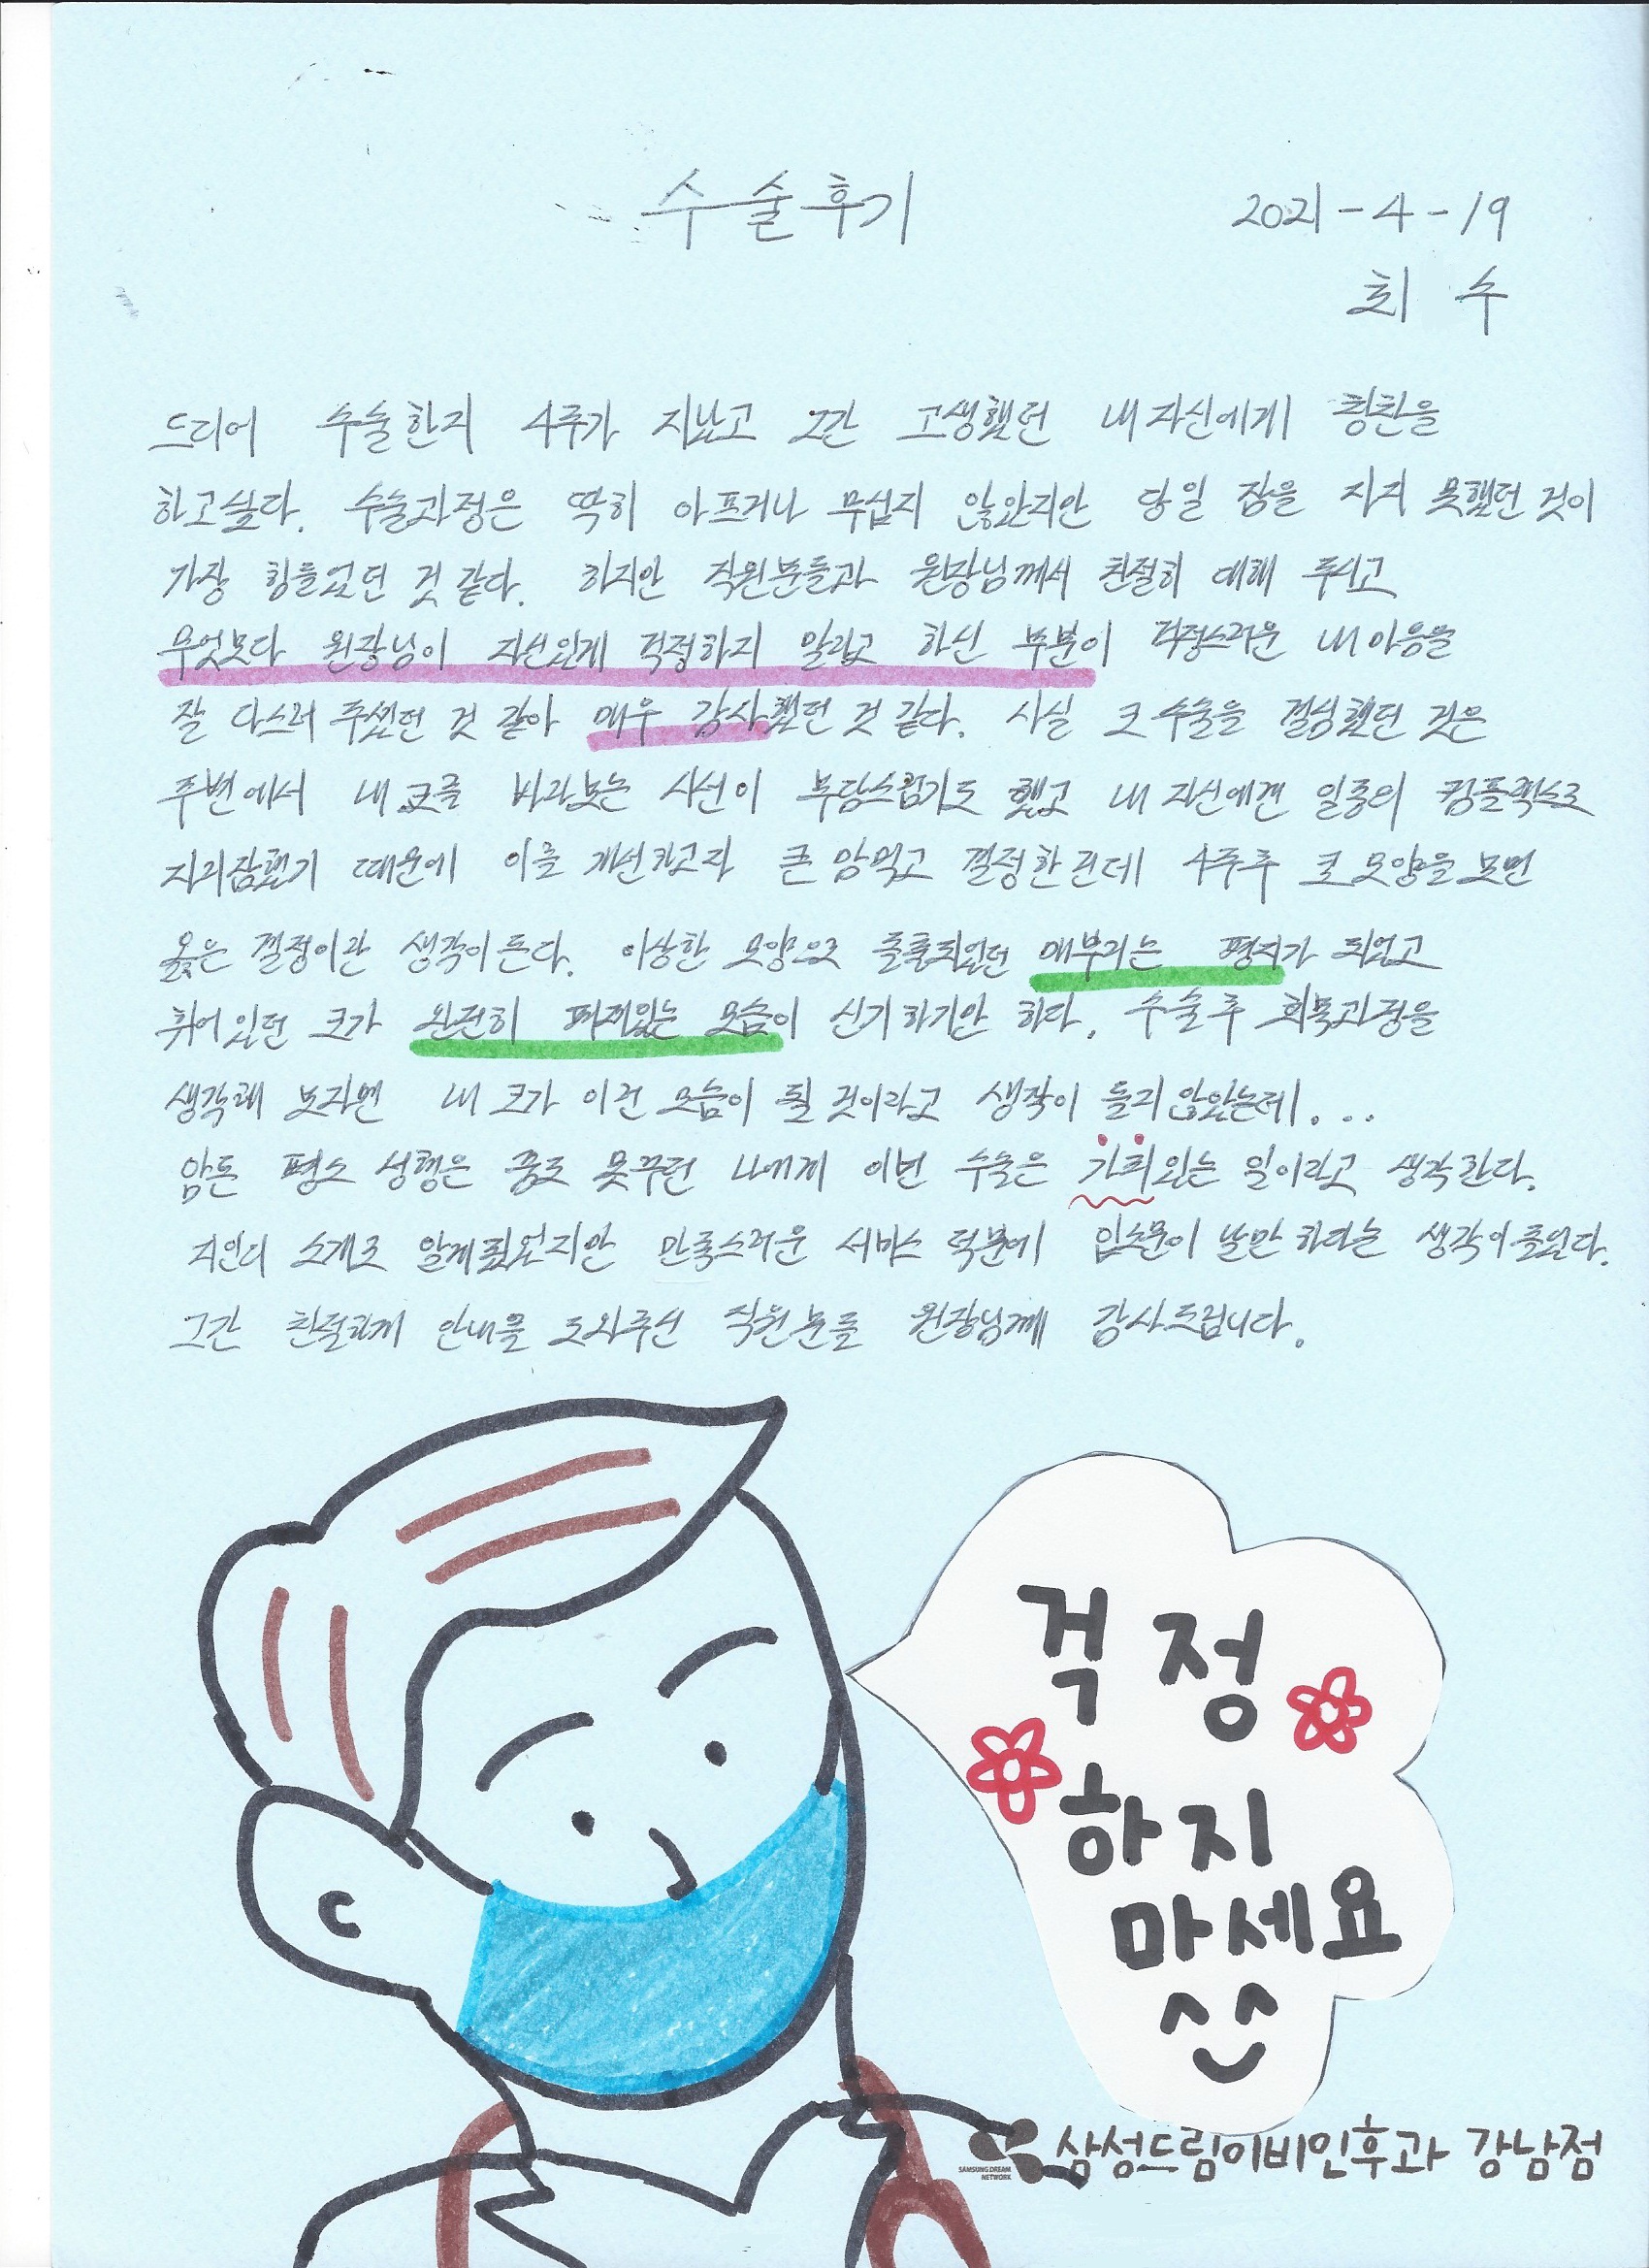 수술후기
2021-4-19
최 수
드디어 수술한지 4주가 지났고 그간 고생했던 내 자신에게 칭찬을
하고싶다. 수술과정은 딱히 아프거나 무섭지 않았지만 당일 잠을 자지 못했던 것이
가장 힘들었던 것 같다. 하지만 직원분들과 원장님께서 친절히 대해 주시고
무엇보다 원장님이 자신있게 걱정하지 말라고 하신 부분이 걱정스러운 내 마음을
잘 다스려 주셨던 것 같아 매우 감사했던 것 같다. 사실 코 수술을 결심했던 것은
주변에서 내 코를 바라보는 시선이 부담스럽기도 했고 내 자신에겐 일종의 컴플렉스로
자리잡했기 때문에 이를 개선하고자 큰 맘먹고 결정한건데 4주후 코 모양을 보면
옳은 결정이란 생각이 든다. 이상한 모양으로 돌출되었던 매부리는 평지가 되었고
휘어있던 코가 완전히 펴져있는 모습이 신기하기만 하다. 수술후 회복과정을
생각해 보자면 내 코가 이런 모습이 될 것이라고 생각이 들지 않았는데...
암튼 평소 성형은 꿈도 못꾸던 나에게 이번 수술은 가치있는 일이라고 생각한다.
지인의 소개로 알게됐었지만 만족스러운 서비스 덕분에 입소문이 날만 하다는 생각이 들었다.
그간 친절하게 안내을 도와주신 직원분들 원장님께 감사드립니다.
걱정
하지
마세요
삼성드림이비인후과 강남점
SAMSUNG DREAM
NETWORK